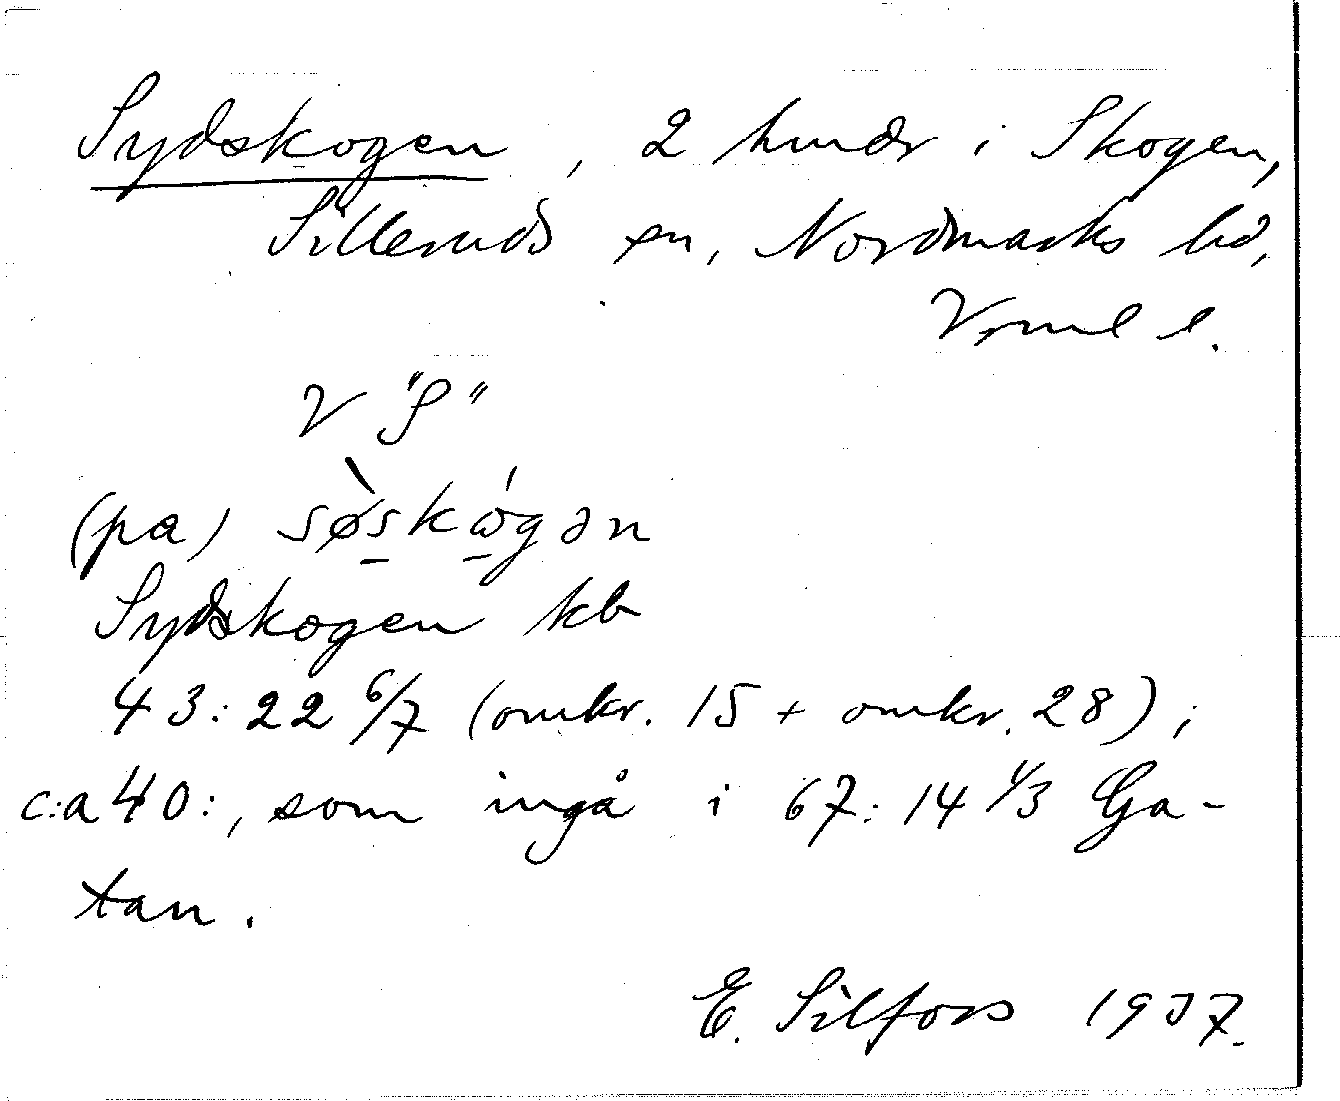 Sydskogen, 2 hmdr i Skogen,
Silleruds sn, Nordmarks hd,
Vrml l.
V "S"
(pa) søskógən
Sydskogen kb
43:22 6/7 (omkr. 15 + omkr. 28);
c:a 40:, som ingå i 67:14 1/3 Ga-
tan.
E. Silfors 1937.